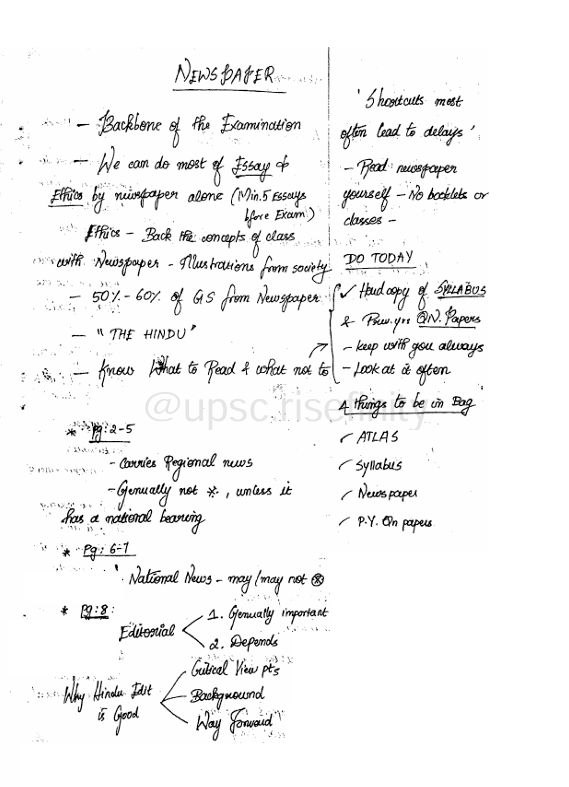 NEWSPAPER
- Backbone of the Examination
- We can do most of Essay &
Ethics by newspaper alone (Min. 5 Essays
before Exam)
Ethics - Back the concepts of class
with Newspaper - Illustrations from society
- 50%-60% of GS from Newspaper
- "THE HINDU"
- Know What to Read & what not to
* Pg: 2-5
- Carries Regional news
- Generally not *, unless it
has a national bearing
* Pg: 6-7
National News - may/may not *
* Pg: 8:
Editorial
1. Generally important
2. Depends
Why Hindu Edit
is Good
Critical View pts
Background
Way Forward
'Shortcuts most
often lead to delays'
- Read newspaper
yourself - No booklets or
classes -
DO TODAY
✓ Hard copy of SYLLABUS
& Prev. yrs QN. Papers
- keep with you always
- Look at it often
4 things to be in Bag
✓ ATLAS
✓ Syllabus
✓ Newspaper
✓ P.Y. Qn papers
@upsc.risefinity